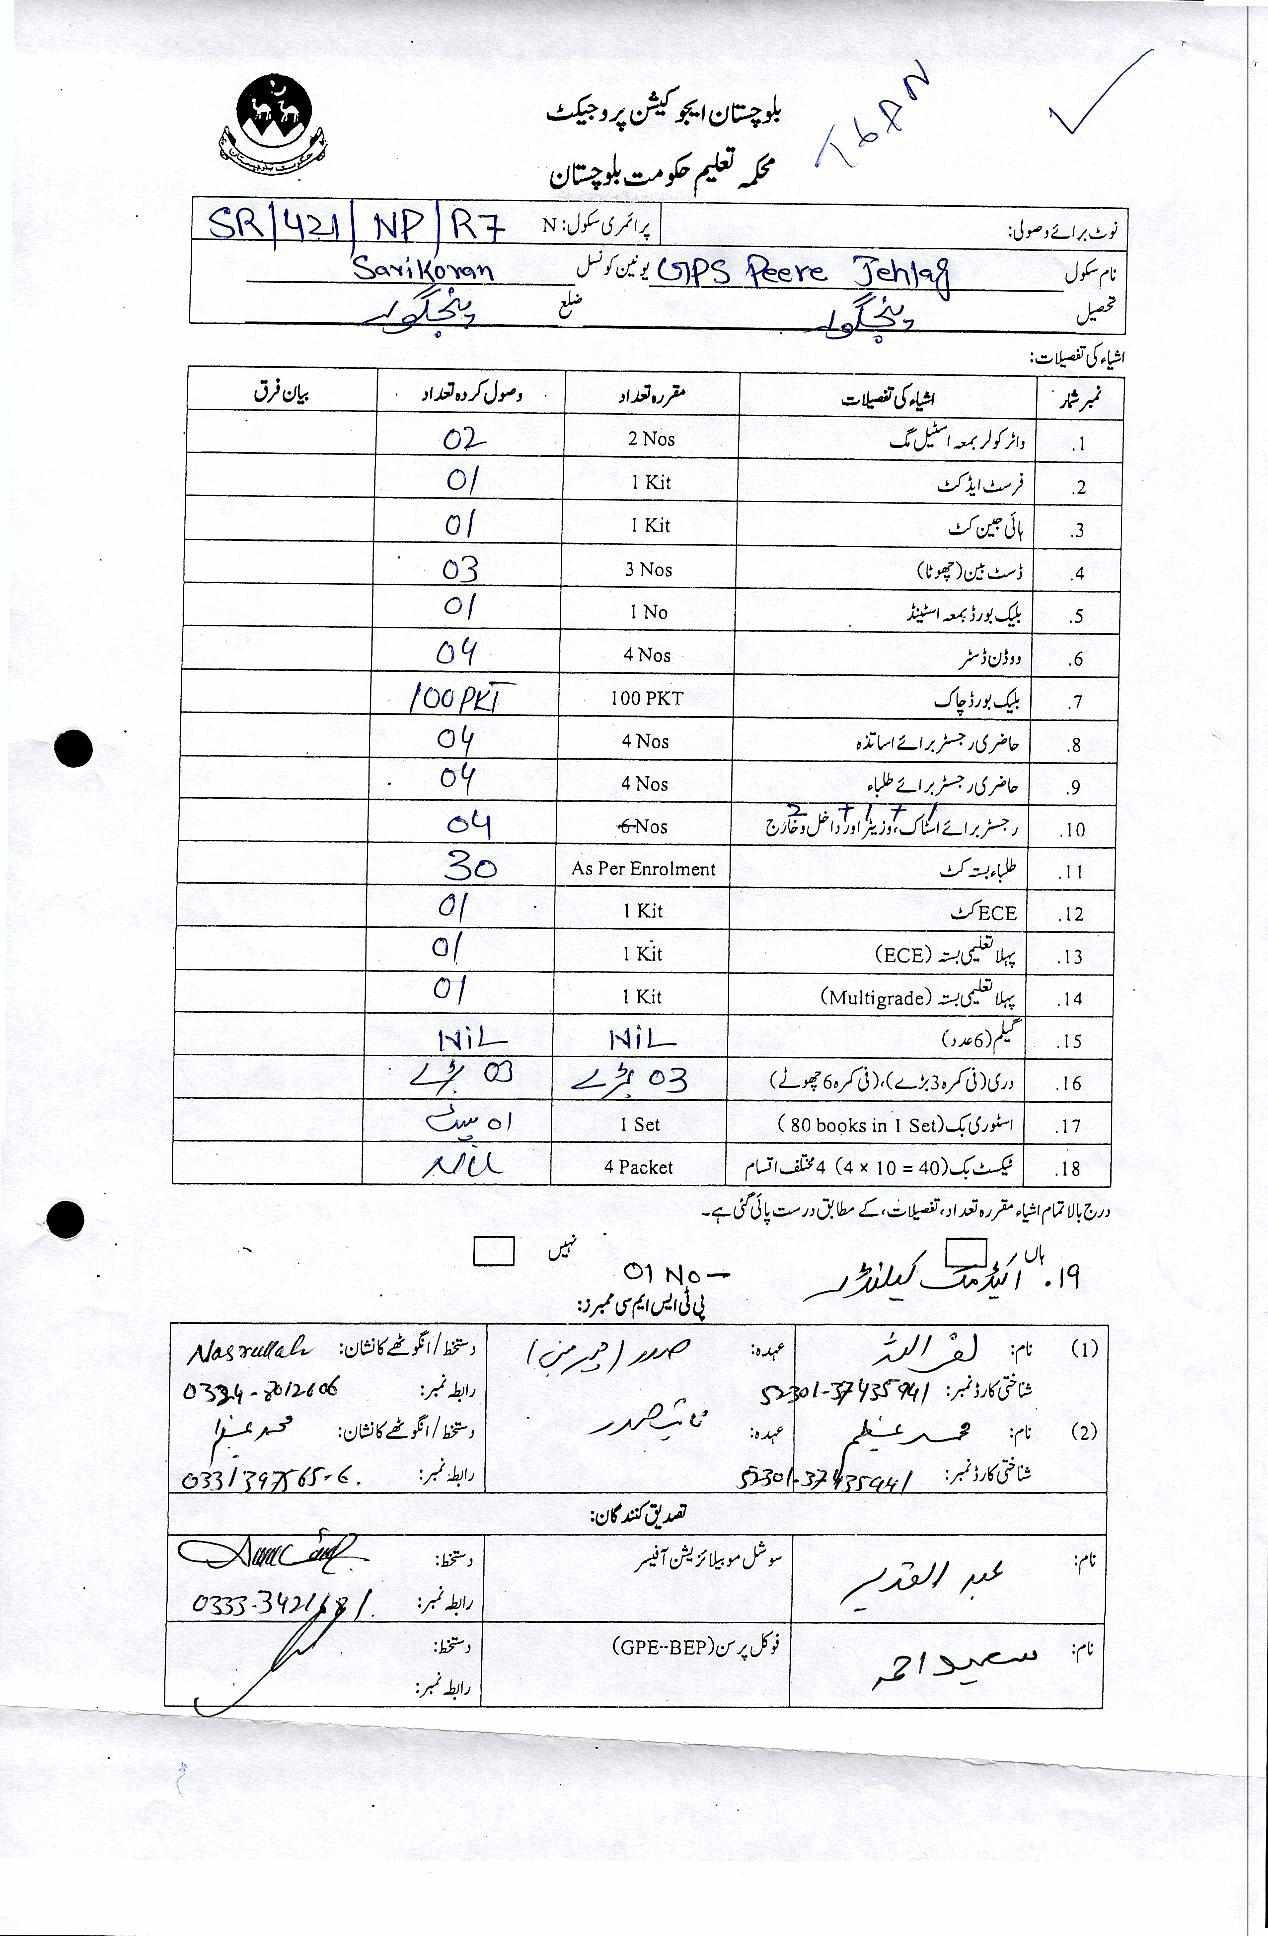 بلوچستان ایجوکیشن پروجیکٹ
محکمہ تعلیم حکومت بلوچستان
نوٹ برائے وصولی: پرائمری سکول: N SR/421/NP/R7
نام سکول GPS Peere Jehlag یونین کونسل SariKoran
تحصیل پنجگور ضلع پنجگور
اشیاء کی تفصیلات:
نمبر شمار اشیاء کی تفصیلات مقررہ تعداد وصول کردہ تعداد بیان فرق
1. واٹر کولر بمعہ اسٹیل مگ 2 Nos 02
2. فرسٹ ایڈ کٹ 1 Kit 01
3. ہائی جین کٹ 1 Kit 01
4. ڈسٹ بین (چھوٹا) 3 Nos 03
5. بلیک بورڈ بمعہ اسٹینڈ 1 No 01
6. ووڈن ڈسٹر 4 Nos 04
7. بلیک بورڈ چاک 100 PKT 100 PKT
8. حاضری رجسٹر برائے اساتذہ 4 Nos 04
9. حاضری رجسٹر برائے طلباء 4 Nos 04
2 + 1 + 1
10. رجسٹر برائے اسٹاک، وزیٹر اور داخل و خارج 6 Nos 04
11. طلباء بستہ کٹ As Per Enrolment 30
12. ECE کٹ 1 Kit 01
13. پہلا تعلیمی بستہ (ECE) 1 Kit 01
14. پہلا تعلیمی بستہ (Multigrade) 1 Kit 01
15. گیلم (6 عدد) NiL NiL
16. دری (فی کمرہ 3 بڑے)، (فی کمرہ 6 چھوٹے) 03 بڑے 03 بڑے
17. اسٹوری بک (80 books in 1 Set) 1 Set 01 سیٹ
18. ٹیکسٹ بک (4 × 10 = 40) 4 مختلف اقسام 4 Packet NiL
درج بالا تمام اشیاء مقررہ تعداد، تفصیلات، کے مطابق درست پائی گئی ہے۔
ہاں نہیں
۱۹. اکیڈمک کیلنڈر 01 No -
پی ٹی ایس ایم سی ممبرز:
(1) نام: نصر اللہ عہدہ: صدر (چیرمین) دستخط/انگوٹھے کا نشان: Nasrullah
شناختی کارڈ نمبر: 52301-37435941 رابطہ نمبر: 0334-8012606
(2) نام: محمد عظیم عہدہ: نائب صدر دستخط/انگوٹھے کا نشان: محمد عظیم
شناختی کارڈ نمبر: 52301-37435941 رابطہ نمبر: 0331397565-6.
تصدیق کنندگان:
نام: عبد القدیر سوشل موبیلائزیشن آفیسر دستخط:
رابطہ نمبر: 0333-3421681.
نام: سعید احمد فوکل پرسن (GPE--BEP) دستخط:
رابطہ نمبر: